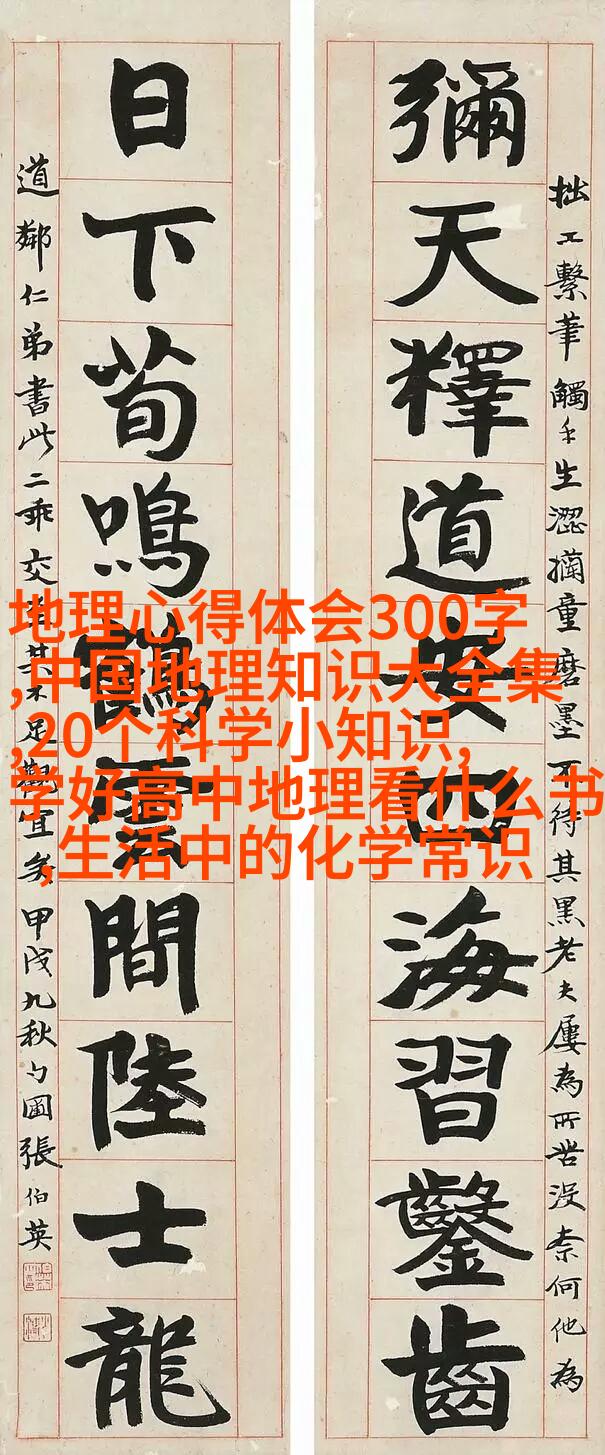 拙工繫筆觸手生澀童磨墨不待其黑老夫屢為所苦沒柰何他為
彌天釋道安四海習鑿齒
日下荀鳴鶴雲間陸士龍
道鄰仁弟書此二乖交并其不足觀宜矣甲戌九秋勺圃張伯英
地理心得体会300字
,中国地理知识大全集
,20个科学小知识,
学好高中地理看什么书
,生活中的化学常识